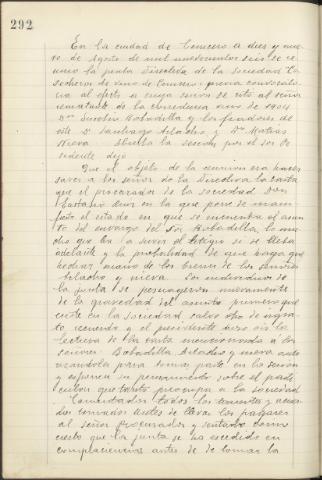 292
En la ciudad de Cenicero a diez y nue
ve de Agosto de mil novecientos seis se re
unio la junta Directiva de la Sociedad Co
sechera de vino de Cenicero previa convocato
ria al efecto a cuyo se cito al señor
rematante de la correduria vino de 1904
Dn Eusebio Bobadilla y los fiadores de
este Dn Santiago y Dn Matias
Nieva Abierta la sesion por el Sor Pre
sidente dijo
Que el objeto de la reunion era hacer
saver a los señores de la Directiva la carta
que el procurador de la sociedad Don
en la que pone de mani
fiesto el estado en que se encuentra el asun
to del embargo del Sor Bobadilla, lo mu
cho que ba a suvir el litigio si se lleba
adelante y la probabilidad de que haya que
hechar mano de los bienes de los fiadores
y Nieva. Los individuos de
la junta se nuevamente
de la gravedad del asunto primero que
existe en la sociedad calvo de ingra
to recuerdo y el presidente dio la
lectura de la carta mencionada a los
señores Bobadilla y Nieva auto
rizandola para tomar parte en la sesion
y esponer su pensamiento sobre el parti
cular que tanto preocupa a la sociedad
Comentados todos los y acuer
dos tomados antes de llevar los pagares
al señor procurador y sentado como
cierto que la junta se ha escedido en
complacencias antes de de tomar la